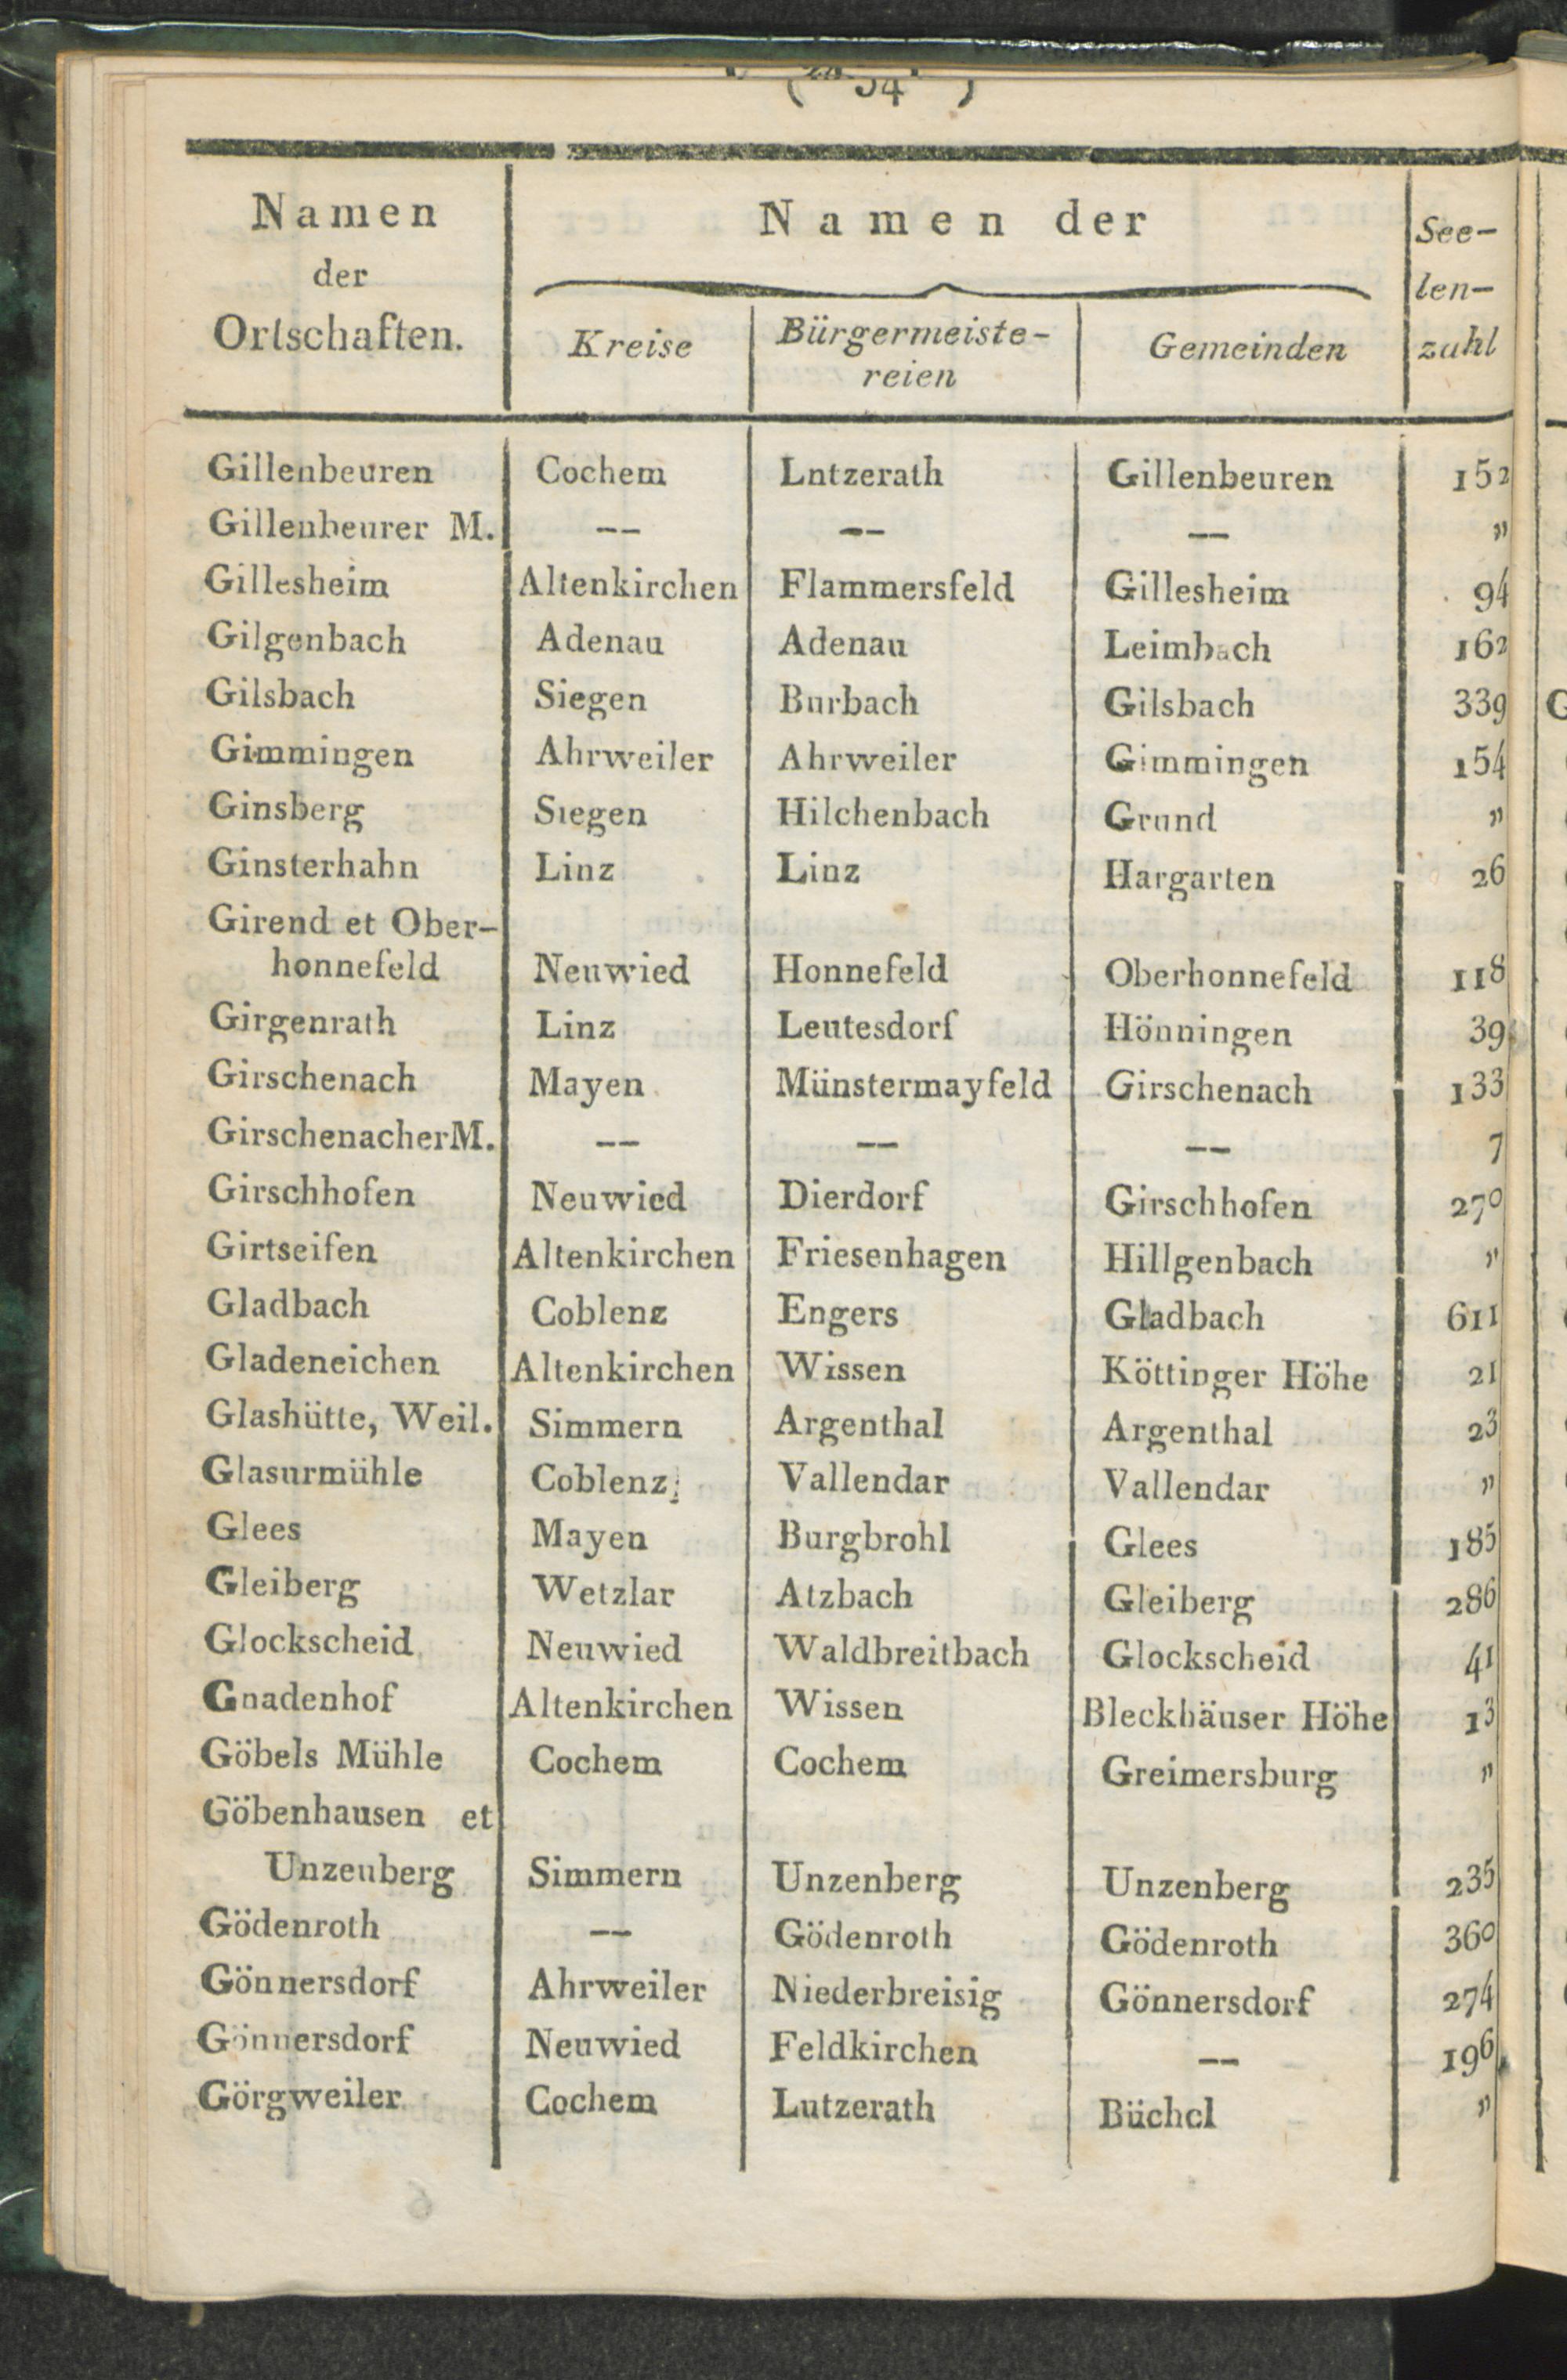 ( 54 )
Namen
der
Ortschaften.
Namen der
Kreise
Bürgermeiste-
reien
Gemeinden
See-
len-
zahl
Gillenbeuren Cochem Lntzerath Gillenbeuren 152
Gillenbeurer M. -- -- -- "
Gillesheim Altenkirchen Flammersfeld Gillesheim 94
Gilgenbach Adenau Adenau Leimbach 162
Gilsbach Siegen Burbach Gilsbach 339
Gimmingen Ahrweiler Ahrweiler Gimmingen 154
Ginsberg Siegen Hilchenbach Grund "
Ginsterhahn Linz Linz Hargarten 26
Girend et Ober-
honnefeld Neuwied Honnefeld Oberhonnefeld 118
Girgenrath Linz Leutesdorf Hönningen 39
Girschenach Mayen Münstermayfeld Girschenach 133
GirschenacherM. -- -- -- 7
Girschhofen Neuwied Dierdorf Girschhofen 270
Girtseifen Altenkirchen Friesenhagen Hillgenbach "
Gladbach Coblenz Engers Gladbach 611
Gladeneichen Altenkirchen Wissen Köttinger Höhe 21
Glashütte, Weil. Simmern Argenthal Argenthal 23
Glasurmühle Coblenz; Vallendar Vallendar "
Glees Mayen Burgbrohl Glees 185
Gleiberg Wetzlar Atzbach Gleiberg 286
Glockscheid Neuwied Waldbreitbach Glockscheid 41
Gnadenhof Altenkirchen Wissen Bleckhäuser Höhe 13
Göbels Mühle Cochem Cochem Greimersburg "
Göbenhausen et
Unzenberg Simmern Unzenberg Unzenberg 235
Gödenroth -- Gödenroth Gödenroth 360
Gönnersdorf Ahrweiler Niederbreisig Gönnersdorf 274
Gönnersdorf Neuwied Feldkirchen -- 196
Görgweiler Cochem Lutzerath Büchel "